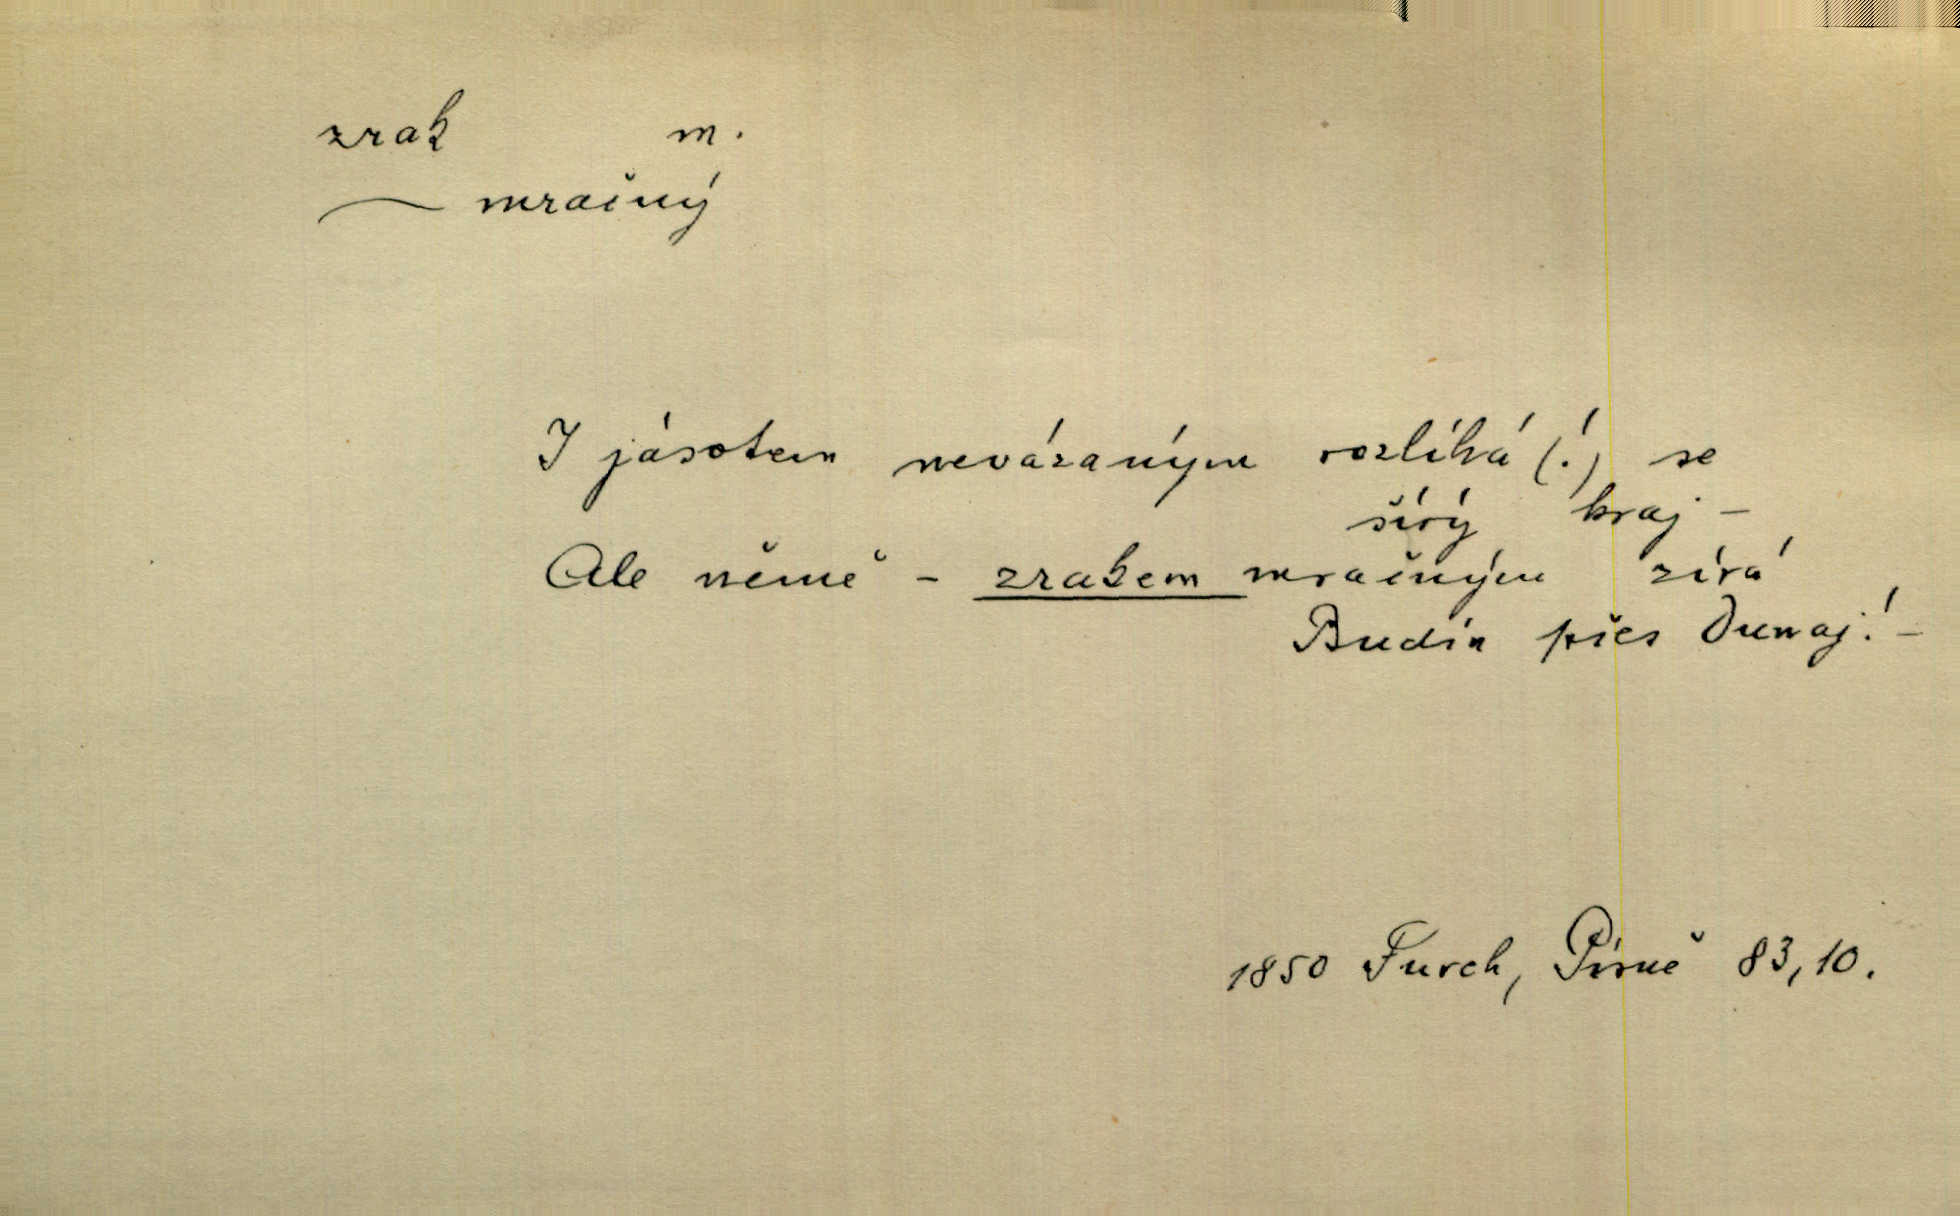 zrak m.
— mračný
I jásotem nevázaným rozlíhá (!) se
šírý kraj —
Ale němě — zrakem mračným zírá
Budín přes Dunaj! —
1850 Furch, Písně 83,10.